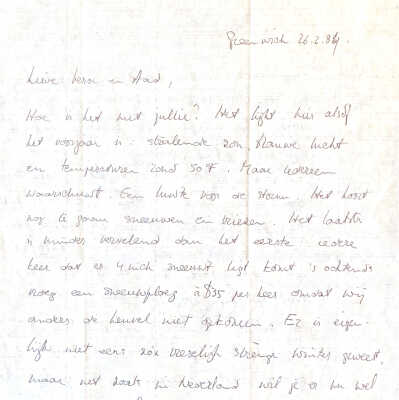 Greenwich 26.2.84.
Lieve en Aad,
Hoe is het met jullie? Het lijkt hier alsof
het voorjaar is: stralende zon, blauwe lucht
en temperaturen rond 50°F. Maar iedereen
waarschuwt. Een stilte voor de storm. Het hoort
nog te gaan sneeuwen en vriezen. Het laatste
is minder vervelend dan het eerste: iedere
keer dat er 4 inch sneeuwt ligt komt 's ochtends
vroeg een sneeuwploeg à $35 per keer omdat wij
anders de heuvel niet opkomen. Er is eigen-
lijk niet eens zo'n vreselijk strenge winter geweest,
maar net zoals in Nederland wil je er nu wel